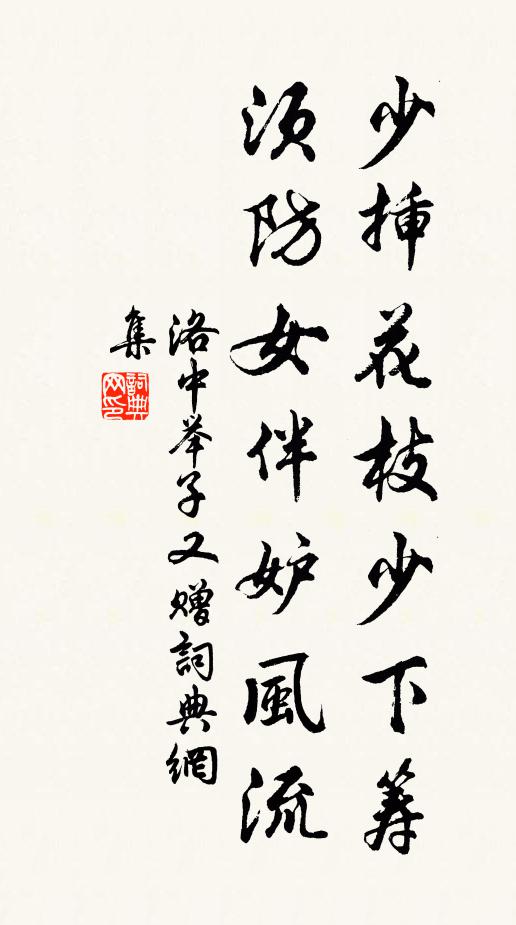 少挿花枝少下筹
须防女伴妒風流
洛中举子又赠詞典網
集
詞典网印